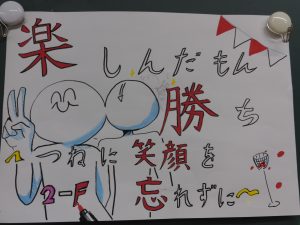 楽しんだもん
勝ち
〜つねに笑顔を
2-F 忘れずに〜